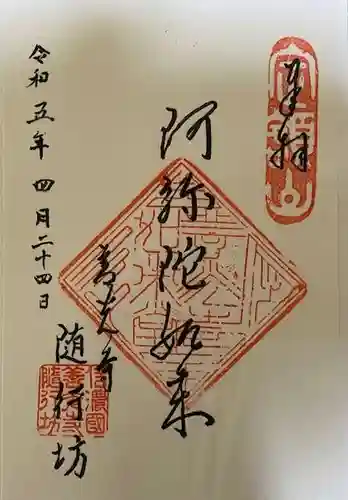 奉拝
阿弥陀如来
善光寺
随行坊
令和五年 四月二十四日
定額山
信濃國
善光寺
随行坊